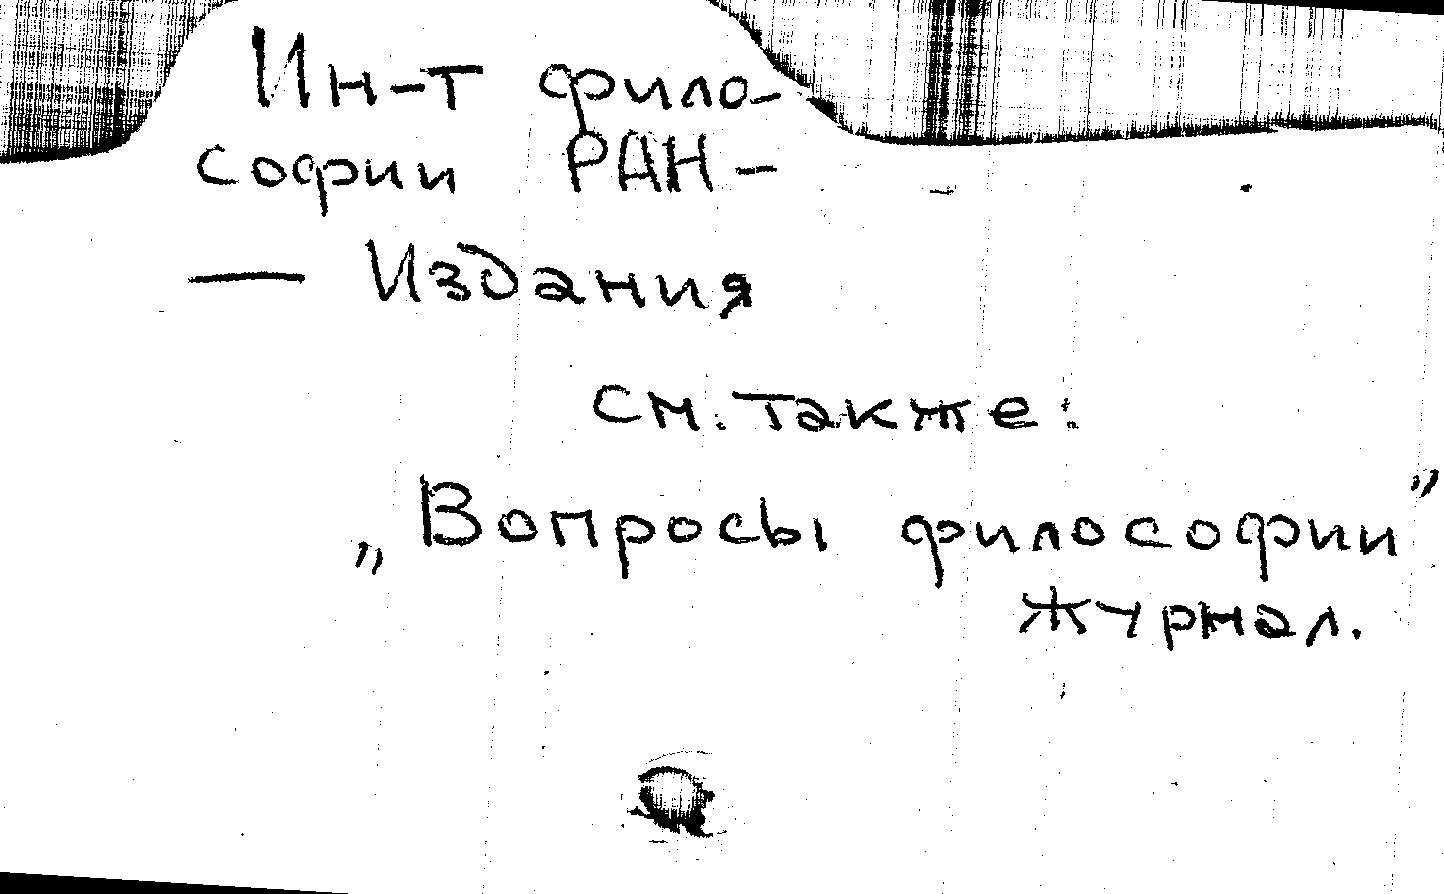 Ин-т фило-
софии РАН -
— Издания
см. также:
„Вопросы философии”
журнал.